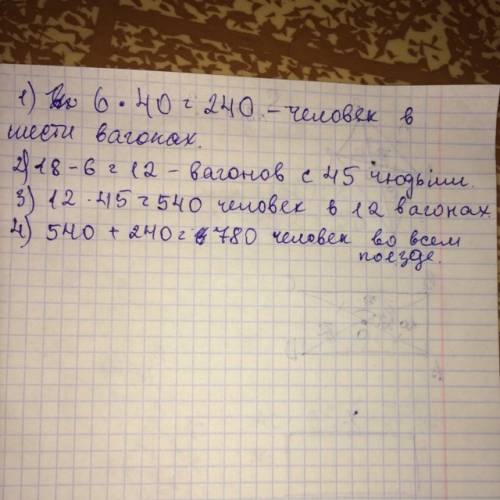 1) 6 · 40 = 240 - человек в
шести вагонах.
2) 18 - 6 = 12 - вагонов с 45 людьми.
3) 12 · 45 = 540 человек в 12 вагонах
4) 540 + 240 = 780 человек во всем
поезде.